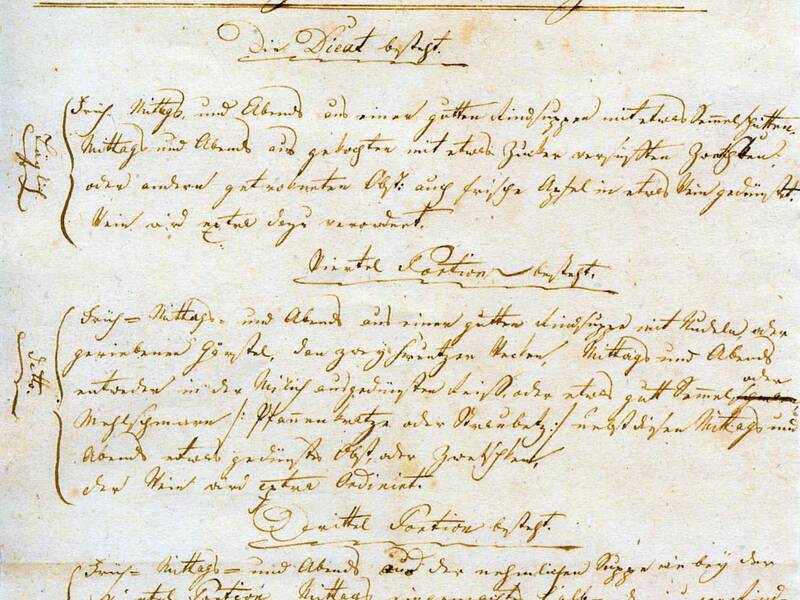 Die Dieat besteht.
Früh- Mittags, und Abends aus einer gutten Rindsuppen mit etwas Semmelschnitten.
Mittags und Abends aus gekochten mit etwas Zucker versüssten Zwetschken,
oder andern getrokneten Obst: auch frische Apfel in etwas Wein gedünstet.
Wein wird extra dazu verordnet.
Viertel Portion besteht.
Früh= Mittags= und Abends aus einer gutten Rindsuppe mit Nudeln oder
geriebenen Gerstel, den zwey Wecken, Mittags und Abends
entweder in der Milch ausgedünsten Reiss, oder etwas gutt Semmel oder
Mehlschmarn /: Pfannenkratze oder Straubetz :/ nebst diesen Mittags und
Abends etwas gedünstes Obst, oder Zwetschken,
der Wein wird extra Ordiniret.
Drittel Portion besteht.
Früh= Mittags= und Abends aus der nehmlichen Suppe wie bey der
Viertel Portion, Mittags